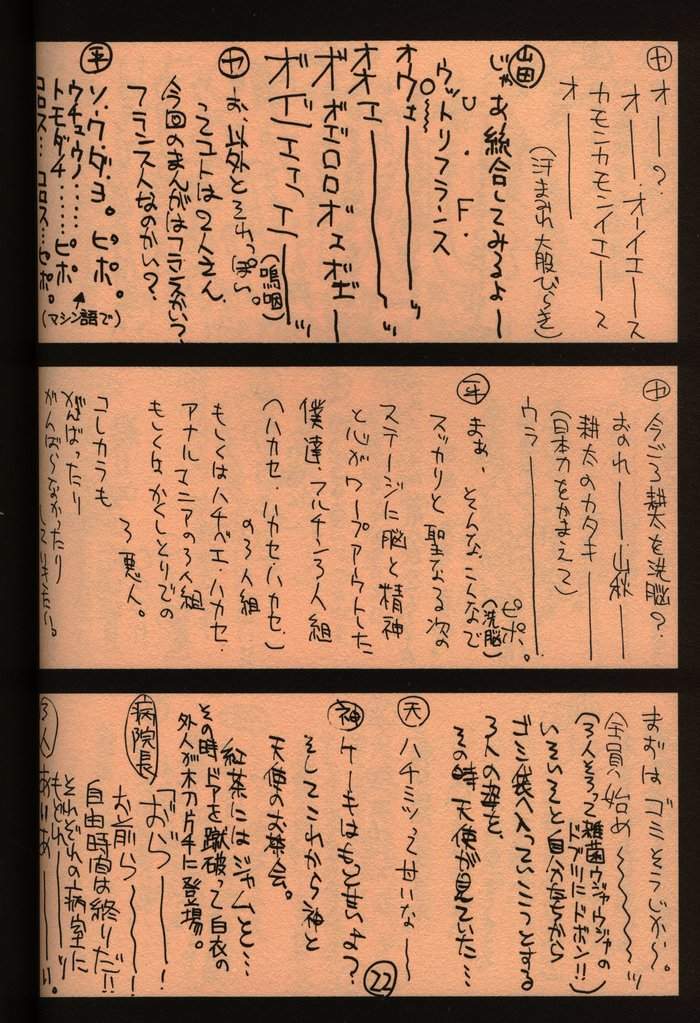 ヤ
オー?
オー。オーイエース
カモンカモンイエース
オー
(汗まみれ大股びらき)
山田
じゃあ統合してみるよー
U.F.O
ウットリフランス
オウェー
オオェー
ボボェロロボェボゼー
ボェェェェー(嗚咽)
ヤ
お、以外とそれっぽい。
ってコトは2人さん、
今回のまんがはフランスかい?
フランス人なのかい?
平
ソ・ウ・ダ・ヨ。ピポ。
ウチュウノ……ピポ
トモダチ……ピポ。
コロス…コロス…ピポ。
(マシン語で)
ヤ
今ごろ耕太を洗脳?
おのれー山秋
耕太のカタキー
(日本刀をかまえて)
ウラー
ピポ。
(洗脳)
平
まぁ、そんなこんなで
スッカリと聖なる次の
ステージに脳と精神
と心がワープアウトした
僕達、フルチン3人組
(ハカセ・ハカセ・ハカセ)
の3人組
もしくはハチベエ・ハカセ・
アナルマニアの3人組
もしくはかくしとりでの
3悪人。
コレカラも
がんばったり
がんばらなかったり
していきたい。
まずはゴミそうじから〜。
全員、始め〜〜〜ッ
(3人そろって雑菌ウジャウジャの
ドブ川にドボン!!)
いそいそと自分たちから
ゴミ袋へ入っていこうとする
3人の姿を、
その時天使が見ていた…
天
ハチミツって甘いな〜
神
ケーキはもっと甘いよ?
そしてこれから神と
天使のお茶会。
紅茶にはジャムと…
その時ドアを蹴破って白衣の
外人が木刀片手に登場。
病院長
「おらー!
お前らー!
自由時間は終りだ!!
それぞれの病室に
もどれーッ
3人
あいあーい。
22